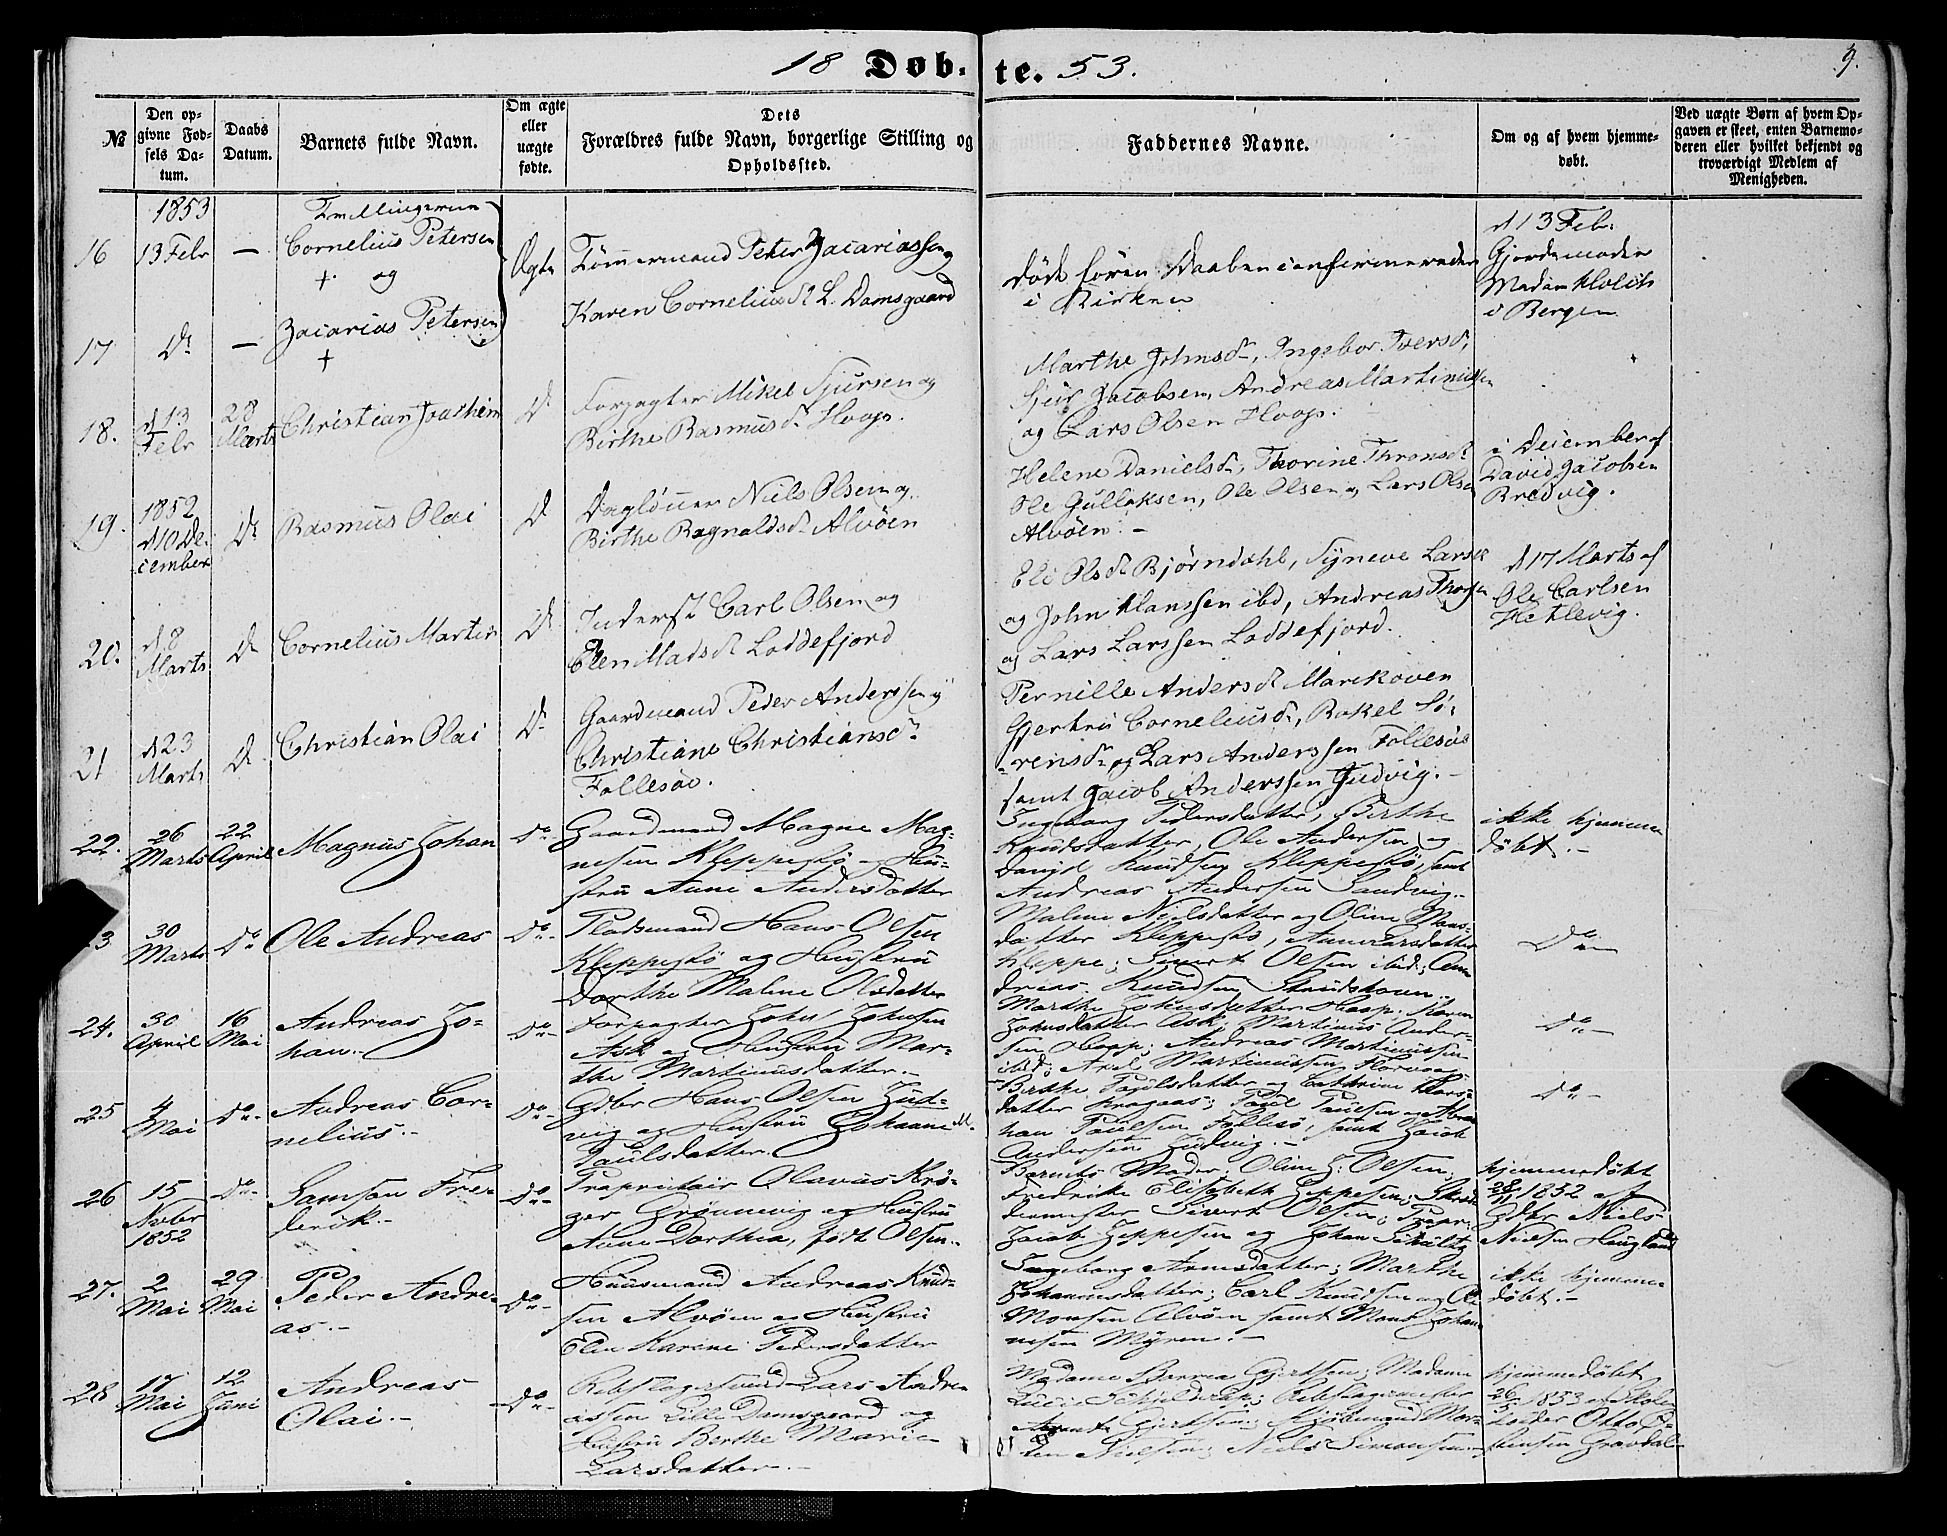 18 Døb- te. 53.
9.
№
Den opgivne Fødsels Datum.
Daabs Datum.
Barnets fulde Navn.
Om ægte eller uægte fødte.
Dets Forældres fulde Navn, borgerlige Stilling og Opholdssted.
Faddernes Navne.
Om og af hvem hjemmedøbt.
Ved uægte Børn af hvem Opgaven er skeet, enten Barnemoderen eller hvilket bekjendt og troværdigt Medlem af Menigheden.
1853
Tvillingerne
16 13 Febr — Cornelius Petersen
+ og
Ægte Tømmermand Peter Zacariassen
Karen Cornelius d. L. Damsgaard
døde foren Daaben
i Kirken
d 13 Febr.
Gjordemoder
Madam Holck
i Bergen
17 Do — Zacarias Petersen
+
18. d 13 Febr 28 Marts Christian Joachim Do
Forpagter Mikel Sjursen og
Birthe Rasmusd. Hoop.
Marthe Johnsd., Ingebor Iversd,
Sjur Jacobsen, Andreas Martinussen
og Lars Olsen Hoop.
19. 1852
d 10 De-
cember
Do Rasmus Olai Do
Dagløner Niels Olsen og
Birthe Ragnaldsd. Alvøen
Helene Danielsd., Thorine Thronsd
Ole Gullaksen, Ole Olsen og Lars Olsen
Alvøen. —
i December af
David Jacobsen
Bredvig.
20. d 8 Marts Do Cornelius Martin Do
Inderst Carl Olsen og
Elen Madsd. Loddefjord
Eli Olsd. Bjørndahl, Syneve Larsd
og John Hanssen ibd, Andreas
og Lars Larssen Loddefjord.
d 17 Marts af
Ole Carlsen
Hetlevig.
21 d 23 Marts Do Christian Olai Do
Gaardmand Peder Anderssen og
Christiane Christiansd.
Follesøe.
Pernille Andersd. Marikoven
Gjertru Corneliusd., Rakel Sø-
rensd. og Lars Anderssen Follesøe
samt Jacob Anderssen Judvig. —
22. 26 Marts 22 April Magnus Johan Do
Gaardmand Magne Mag-
nesen Kleppestø og Hu-
stru Anne Andersdatter
Ingeborg Pedersdatter, Birthe
Knudsdatter, Ole Andersen og
Daniel Knudsen Kleppestø, samt
Andreas Andersen Sandvig.
ikke hjemme-
døbt. —
23 30 Marts Do Ole Andreas Do
Pladsmand Hans Olsen
Kleppestø og Hustru
Dorthe Maline Olsdatter
Maline Nielsdatter og Oline Mons-
datter Kleppestø, Anne Larsdatter
Kleppe; Sivert Olsen ibid; An-
dreas Knudsen Skudshavn.
Do
24. 30 April 16 Mai Andreas Jo-
han. — Do
Forpagter John Johnsen
Ask og Hustru Mar-
the Martinusdatter. —
Marthe Johnsdatter Hoop, Karen
Johnsdatter Ask; Martinus Ander-
sen Hoop; Andreas Martinussen
ibid; Axel Martinussen
Do
25 4 Mai Do Andreas Cor-
nelius. — Do
Gdbr Hans Olsen Jud-
vig og Hustru Johanne M.
Paulsdatter.
Birthe Paulsdatter og Cathrine Lars-
datter Kragaas; Paul Paulsen og Abra-
ham Paulsen Follesø, samt Jacob
Andersen Judvig. —
Do
26 15 Novbr 1852 Do Samson Fre-
derik. — Do
Proprietair Olavus Krø-
ger Grønnevig og Hustru
Anne Dorthea, født Olsen.
Barnets Moder; Oline J. Olsen;
Fredrikke Elisabeth Jeppesen;
Sivert Olsen; Propr.
Jacob Jeppesen og Johan Schultz
hjemmedøbt
28/11 1852 af
Gdbr Niels
Nielsen Haugland
27. 2 Mai 29 Mai Peder Andre-
as. — Do
Huusmand Andreas Knud-
sen Alvøen og Hustru
Elen Karine Pedersdatter
Ingeborg Arnesdatter; Marthe
Johannesdatter; Carl Knudsen og Ole
Monsen Alvøen samt Mons Johan-
nesen Myren. —
ikke hjemme-
døbt. —
28 17 Mai 12 Juni Andreas
Olai. — Do
Rebslagersvend Lars Andre-
assen Lille Damsgaard og
Hustru Berthe Marie
Larsdatter. —
Madame Gjertsen; Madame
Rebslagermester
Gjertsen; Kjøbmand Mor-
ten Nielsen; Niels Simonsen. —
hjemmedøbt
26/5 1853 af Skole-
holder Otto
Gravdal